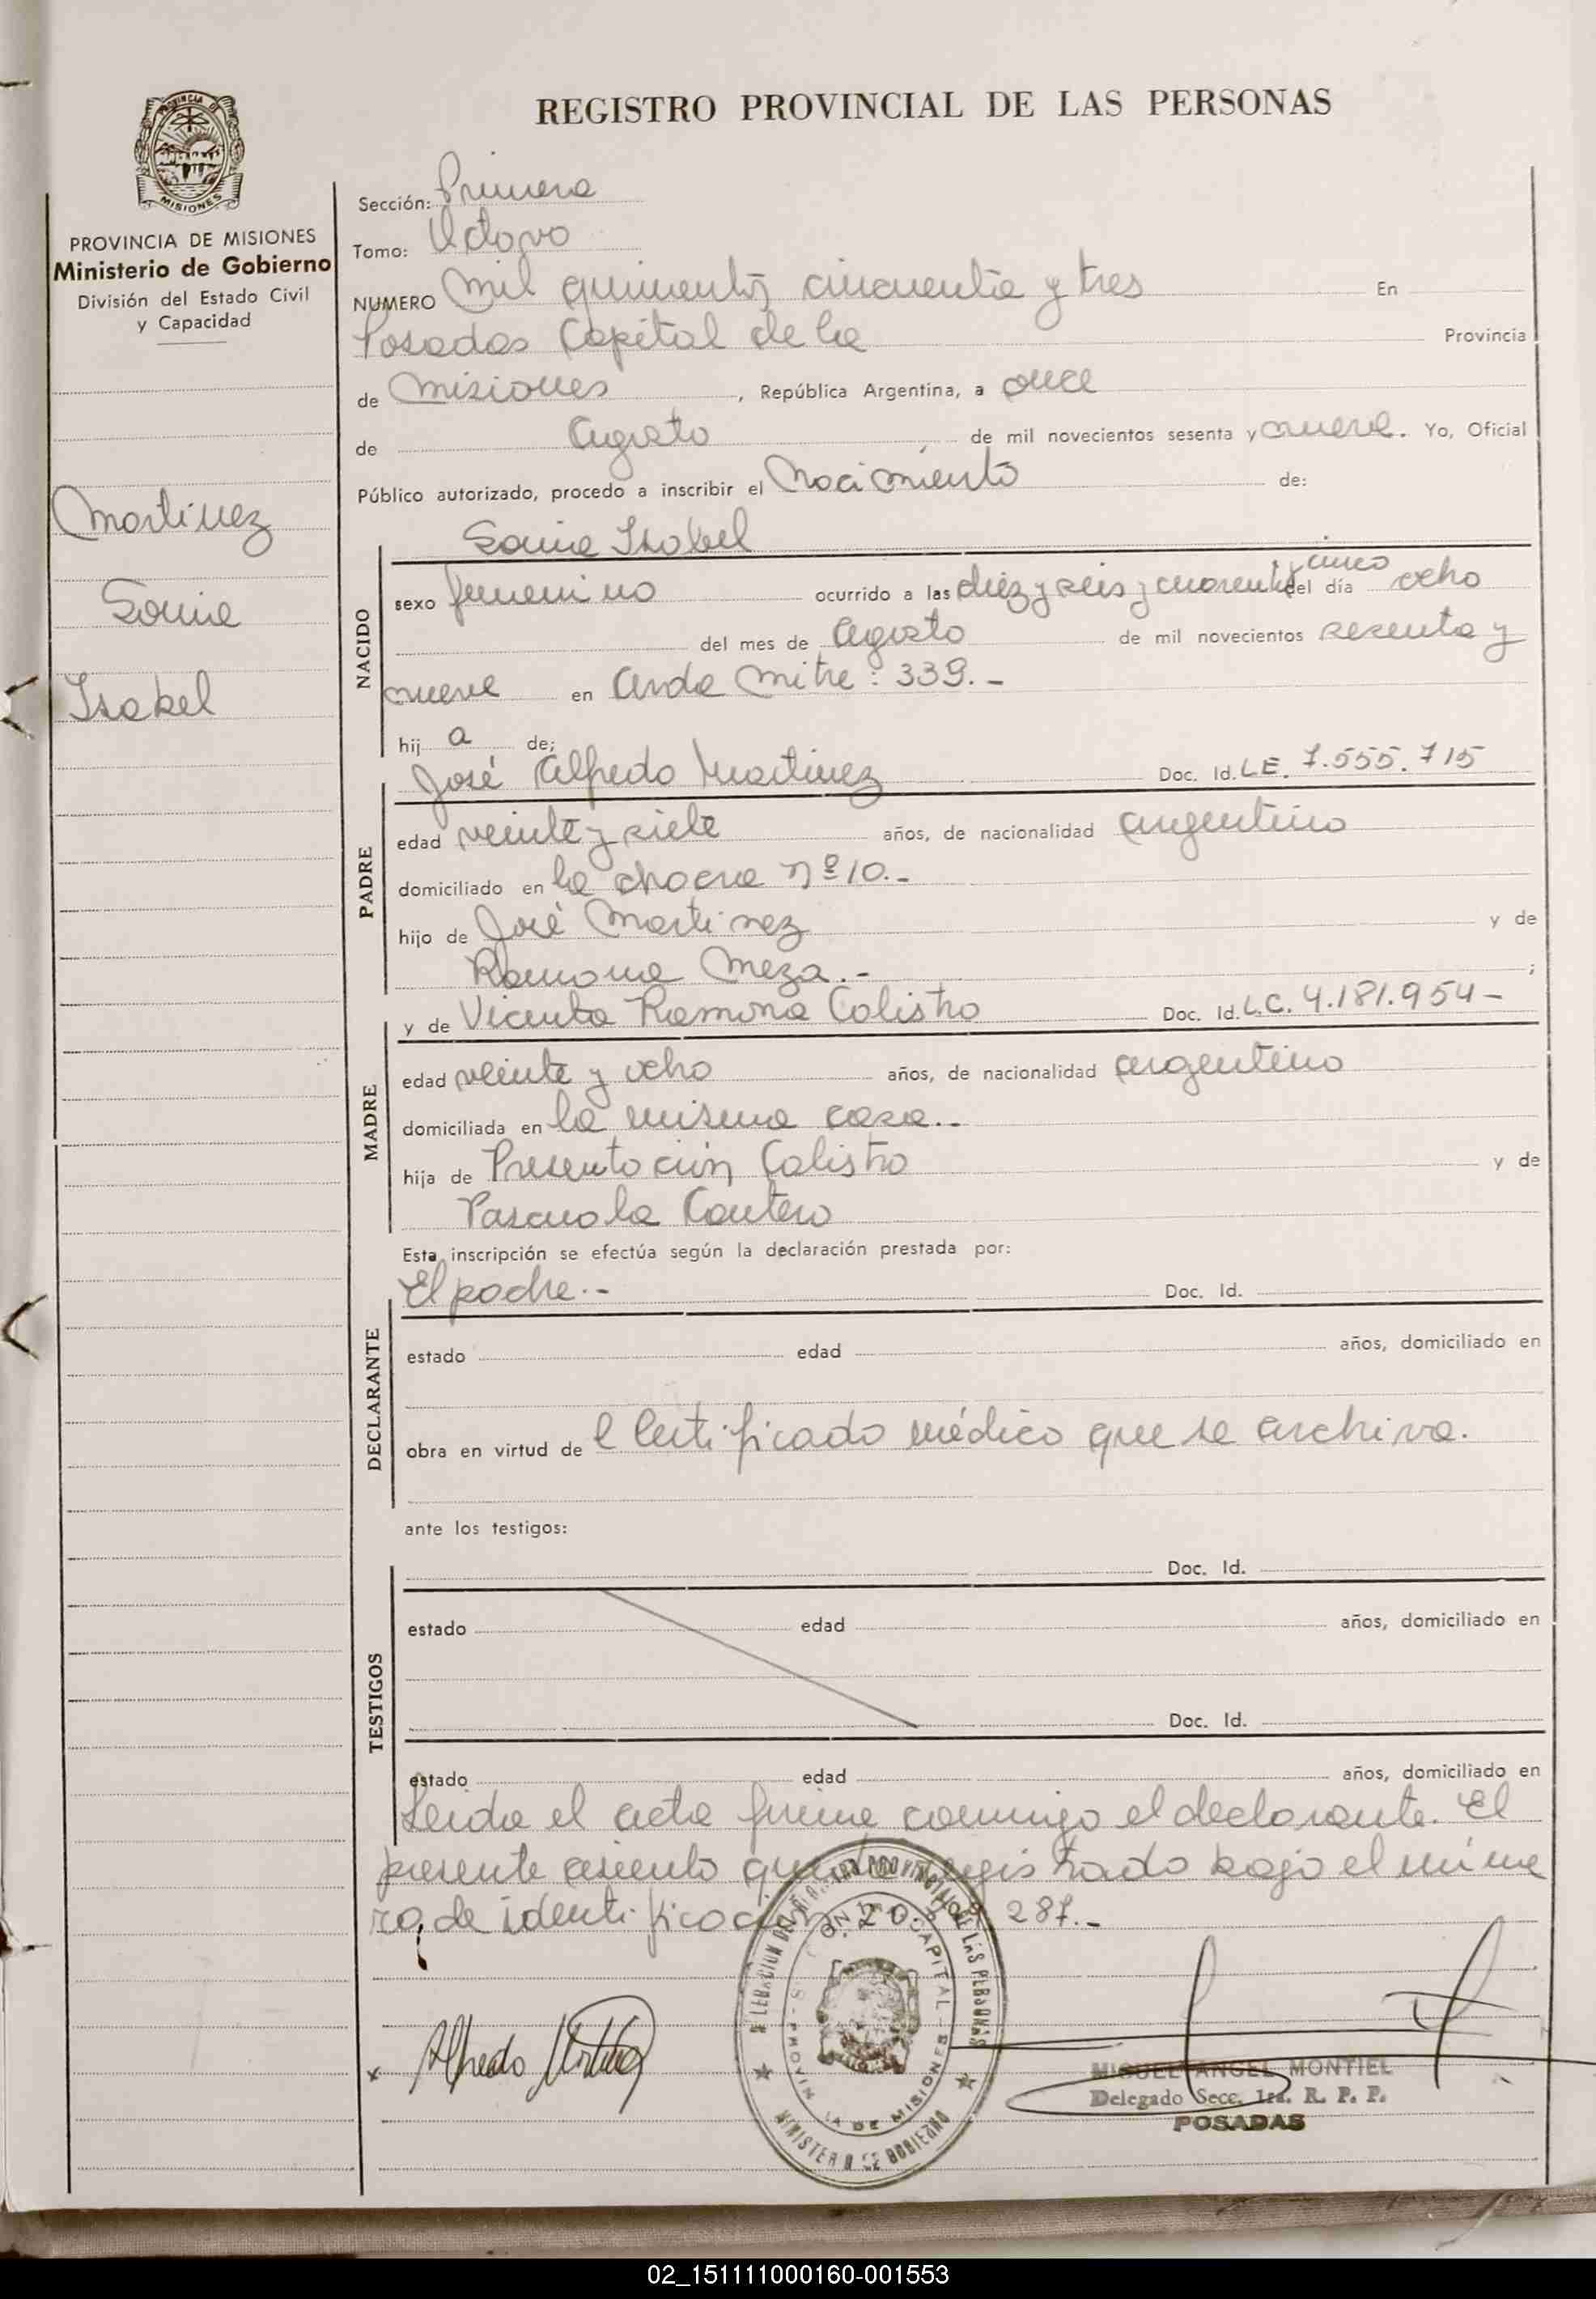 REGISTRO PROVINCIAL DE LAS PERSONAS
PROVINCIA DE
MISIONES
PROVINCIA DE MISIONES
Ministerio de Gobierno
División del Estado Civil
y Capacidad
Martinez
Sonia
Isabel
Sección: Primera
Tomo: Octavo
NUMERO Mil quinientos cincuenta y tres En
Posadas Capital de la Provincia
de Misiones, República Argentina, a once
de Agosto de mil novecientos sesenta y nueve. Yo, Oficial
Público autorizado, procedo a inscribir el Nacimiento de:
Sonia Isabel
NACIDO
y cinco
sexo femenino ocurrido a las diez y seis y cuarenta del día ocho
del mes de Agosto de mil novecientos sesenta y
nueve en Avda Mitre: 339.-
hij a de;
José Alfredo Martinez Doc. Id. L.E. 7.555.715
PADRE
edad veinte y siete años, de nacionalidad argentino
domiciliado en la chacra nº 10.-
hijo de José Martinez y de
Ramona Meza.- ;
y de Vicenta Ramona Calistro Doc. Id. L.C. 4.181.954-
MADRE
edad veinte y ocho años, de nacionalidad argentino
domiciliada en la misma casa.-
hija de Presentación Calistro y de
Pascuala Cantero
Esta inscripción se efectúa según la declaración prestada por:
El padre.- Doc. Id.
DECLARANTE
estado edad años, domiciliado en
obra en virtud de l Certificado médico que se archiva.
ante los testigos:
Doc. Id.
TESTIGOS
estado edad años, domiciliado en
Doc. Id.
estado edad años, domiciliado en
Leida el acta firma conmigo el declarante. El
presente asiento queda registrado bajo el núme
ro de identificación 287.-
Alfredo
MINISTERIO DE GOBIERNO
CAPITAL
PROVINCIA DE MISIONES
MIGUEL ANGEL MONTIEL
Delegado Secc. 1ra. R. P. P.
POSADAS
02_151111000160-001553